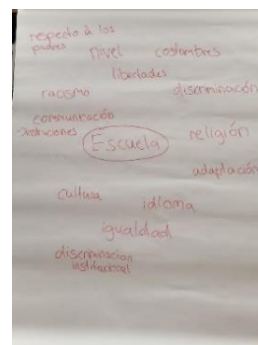 respecto a los
padres
nivel
costumbres
libertades
racismo
discriminación
communicación
Escuela
religión
adaptación
cultura
idioma
igualdad
discriminacion
institucional